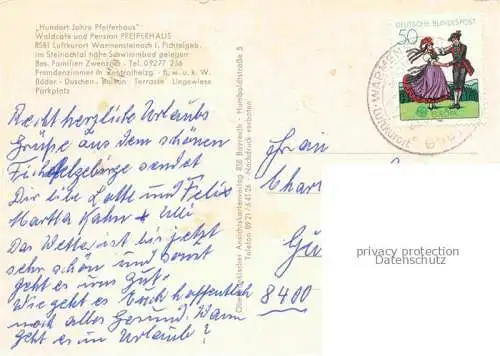 „Hundert Jahre Pfeiferhaus"
Waldcafe und Pension PFEIFERHAUS
8581 Luftkurort Warmensteinach i. Fichtelgeb.
im Steinachtal nahe Schwimmbad gelegen
Bes. Familien Zwenzner · Tel. 09277 256
Fremdenzimmer m. Zentralheizg. · fl. w. u. k. W.
Bäder - Duschen - Balkon Terrasse Liegewiese
Parkplatz
Recht herzliche Urlaubs
Grüße aus dem schönen
Fichtelgebirge sendet
Dir liebe Lotte und Felix
Martha Kahn + Willi
Das Wetter ist bis jetzt
sehr schön und sonst
geht es uns gut.
Wie geht es Euch hoffentlich
noch alles Gesund. Wann
geht es in Urlaub?
Ansichtskartenverlag 858 Bayreuth · Humboldtstraße 5
Telefon 09 21 / 6 41 26 · Nachdruck verboten
DEUTSCHE BUNDESPOST
50
EUROPA
WARMEN
Luftkurort
Frau
Char
Gu
8400
privacy protection
Datenschutz